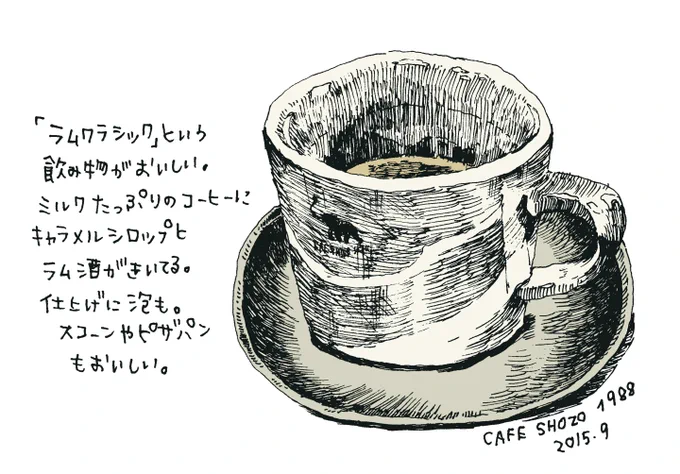 「ラムクラシック」という
飲み物がおいしい。
ミルクたっぷりのコーヒーに
キャラメルシロップと
ラム酒がきいてる。
仕上げに泡も。
スコーンやピザパン
もおいしい。
CAFE SHOZO 1988
2015.9